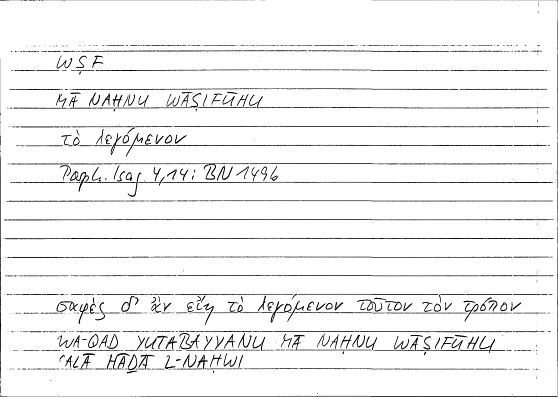 WṢF
MĀ NAḤNU WĀṢIFŪHU
τὸ λεγόμενον
Porph. Isag. 4,14: BN 1496
σαφὲς δ' ἂν εἴη τὸ λεγόμενον τοῦτον τὸν τρόπον
WA-QAD YUTABAYYANU MĀ NAḤNU WĀṢIFŪHU
ʿALĀ HĀḎĀ L-NAḤWI